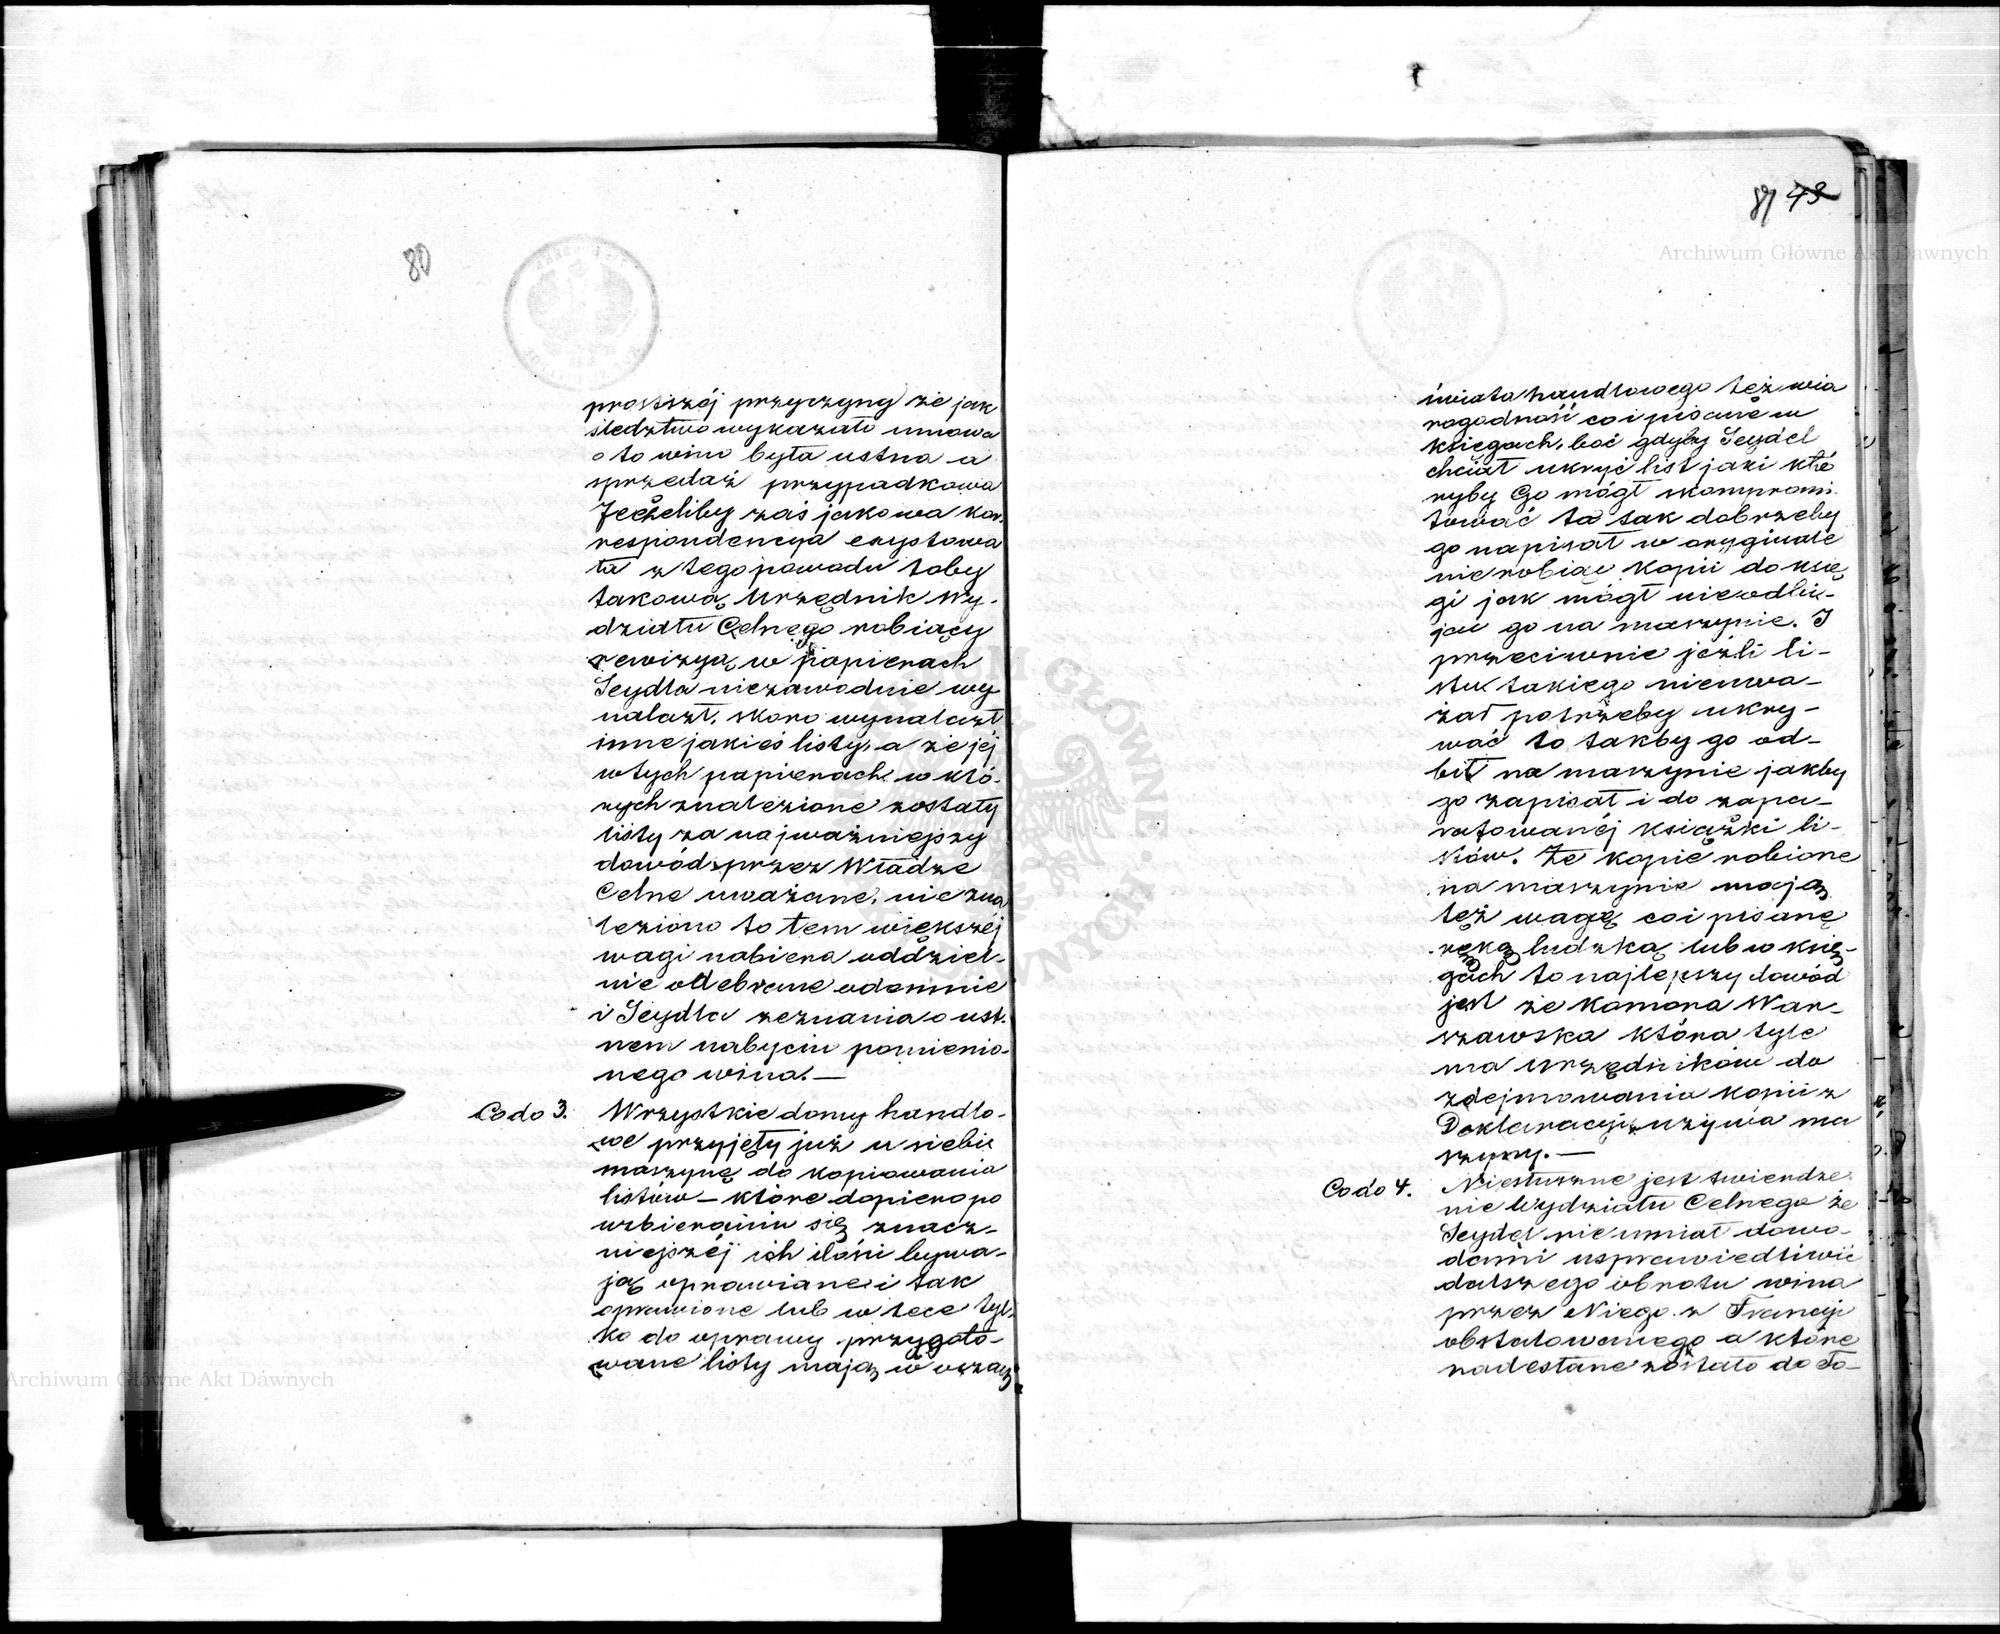 80
prostszéj przyczyny że jak
śledztwo wykazało umowa
o to wino była ustna a
sprzedaż przypadkowa
Jeżeliby zaś jakowa kor-
respondencya exystowa
ła z tego powodu toby
takową Urzędnik Wy-
działu Celnego robiący
rewizyą w papierach
Seydla niezawodnie wy
nalazł, skoro wynalazł
inne jakieś listy, a że jéj
w tych papierach w któ-
rych znalezione zostały
listy za najważniejszy
dowód przez Władze
Celne uważane, nie zna
leziono to tem większéj
wagi nabiera oddziel-
nie odebrane odemnie
i Seydla zeznania o ust-
nem nabyciu pomienio-
nego wina. —
Co do 3. Wszystkie domy handlo-
we przyjęły już u siebie
maszynę do kopiowania
listów – które dopiero po
uzbieraniu się znacz-
niejszéj ich ilości bywa-
ją oprawiane i tak
oprawione lub w tece tyl-
ko do oprawy przygoto-
wane listy mają w oczach
81 43
świata handlowego też wia
rogodność co i pisane w
księgach, boć gdyby Seydel
chciał ukryć list jaki któ
ryby Go mógł skompromi
tować to tak dobrzeby
go napisał w oryginale
nie robiąc kopii do księ
gi jak mógł nieodbi-
jać go na maszynie. I
przeciwnie jeżli li-
stu takiego nieuwa-
żał potrzeby ukry-
wać to takby go od-
bił na maszynie jakby
go zapisał i do zapa-
ratowanéj książki li-
stów. Że kopie robione
na maszynie mają
też wagę co i pisane
ręką ludzką lub w księ-
gach to najlepszy dowód
jest że Komora War-
szawska która tyle
ma urzędników do
zdejmowania kopii z
Deklaracyi używa ma
szyny. —
Co do 4. Niesłuszne jest twierdze
nie Wydziału Celnego że
Seydel nie umiał dowo-
dami usprawiedliwić
dalszego obrotu wina
przez Niego z Francyi
obstalowanego a które
nadesłane zostało do To-